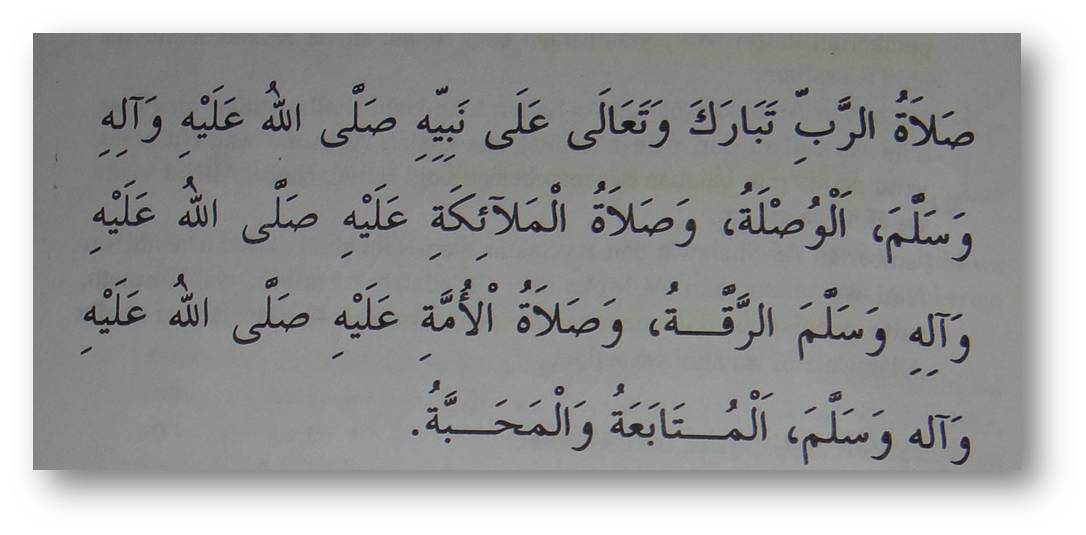 صَلاَةُ الرَّبِّ تَبَارَكَ وَتَعَالَى عَلَى نَبِيِّهِ صَلَّى اللهُ عَلَيْهِ وَآلِهِ
وَسَلَّمَ، اَلْوُصْلَةُ، وَصَلاَةُ الْمَلآئِكَةِ عَلَيْهِ صَلَّى اللهُ عَلَيْهِ
وَآلِهِ وَسَلَّمَ الرَّقَّـــةُ، وَصَلاَةُ اْلأُمَّةِ عَلَيْهِ صَلَّى اللهُ عَلَيْهِ
وَآله وَسَلَّمَ، اَلْمُـــتَابَعَةُ وَالْمَحَـــبَّةُ.